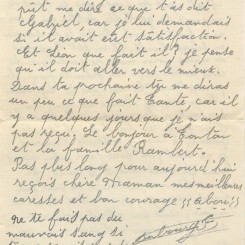 pût me dire ce que t'as dit
Gabriel, car je lui demandais
si il avait eut satisfaction.
Et Léon que fait il? je pense
qu'il doit aller vers le mieux.
Dans ta prochaine tu me diras
un peu ce que fait Tante, car il
y a quelques jours que je n'ais
pas reçu. Le bonjour à Tonton
et la famille Rambert.
Pas plus long pour aujourd'hui
reçois chère Maman mes meilleures
caresses et bon courage
ne te fais pas du
mauvais sang si